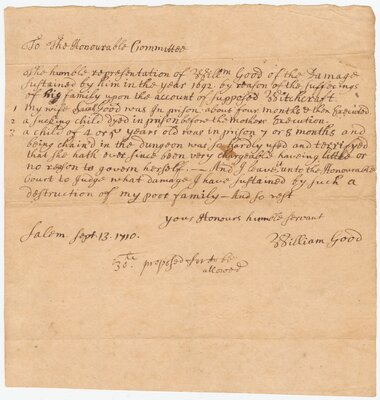 To The Honourable Committee
The humble representation of Willm Good of the Damage
sustained by him in the year 1692 by reason of the sufferings
of my family upon the account of supposed Witchcraft
1 My wife Sarah Good was In prison about four months & then Executed
2 a sucking child dyed in prison before the mothers Execution
3 a child of 4 or 5 years old was in prison 7 or 8 months and
being chain'd in the dungeon was so hardly used and terrifyed
that she hath ever since been very chargeable haveing little or
no reason to govern herself. — And I leave unto the Honourable
Court to Judge what damage I have sustained by such a
destruction of my poor family — And so rest
your Honours humble servant
Salem Sept 13. 1710. William Good
30 proposed for to be
allowed